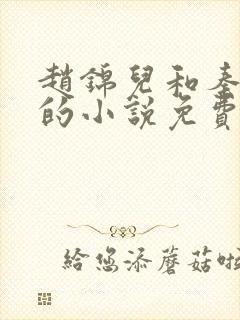 趙錦兒和秦
的小說免費
給您添蘑菇啦